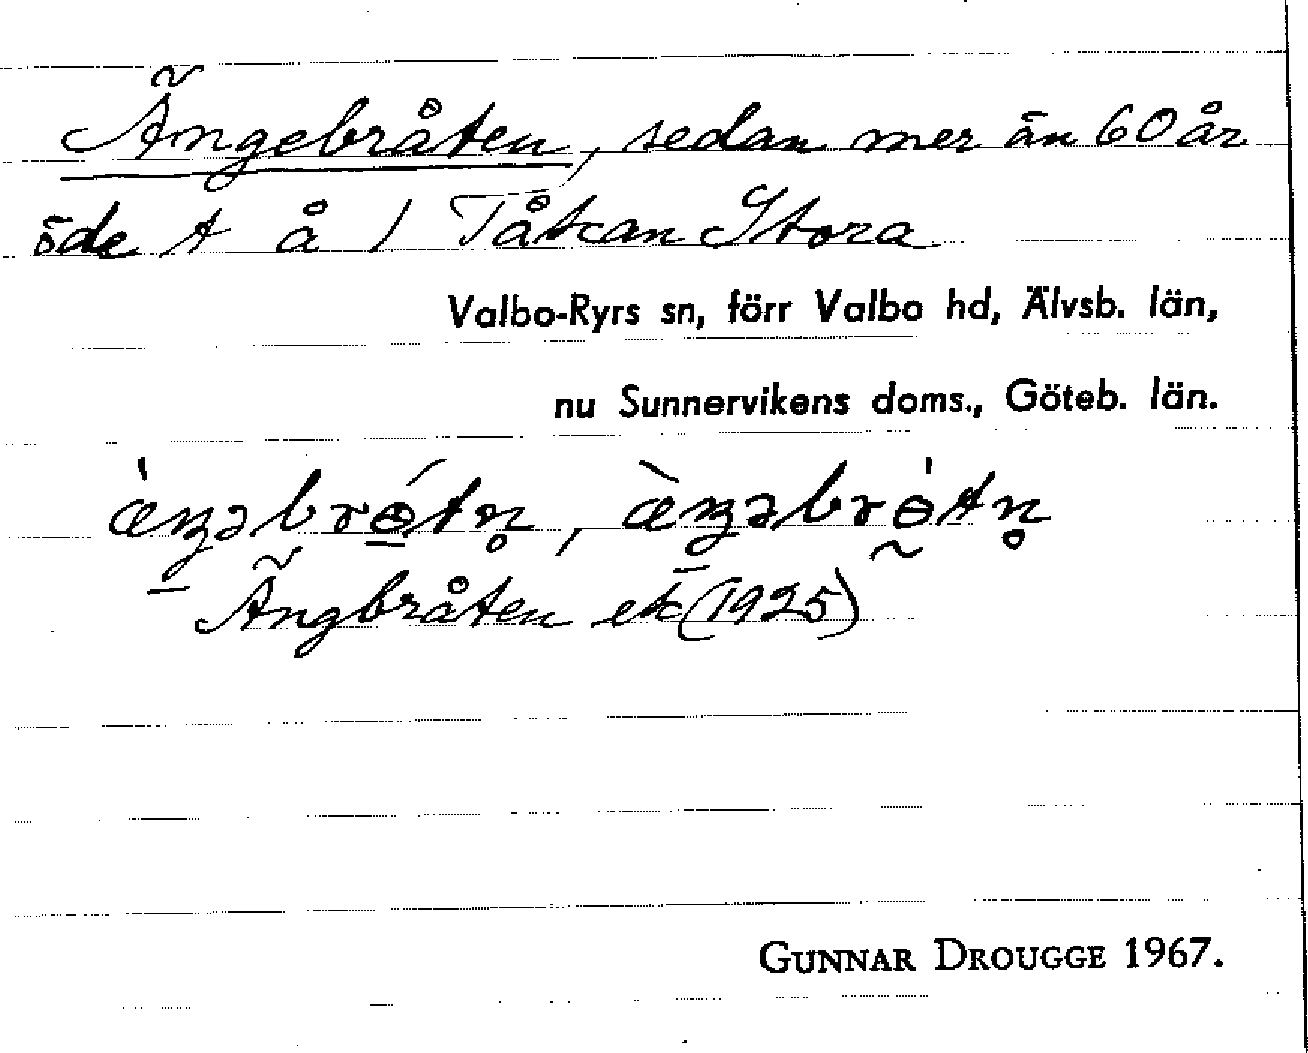 Ängebråten, sedan mer än 60 år
öde t å 1 Tåkan Stora
Valbo-Ryrs sn, förr Valbo hd, Älvsb. län,
nu Sunnervikens doms., Göteb. län.
Ängbråten ek (1925)
GUNNAR DROUGGE 1967.